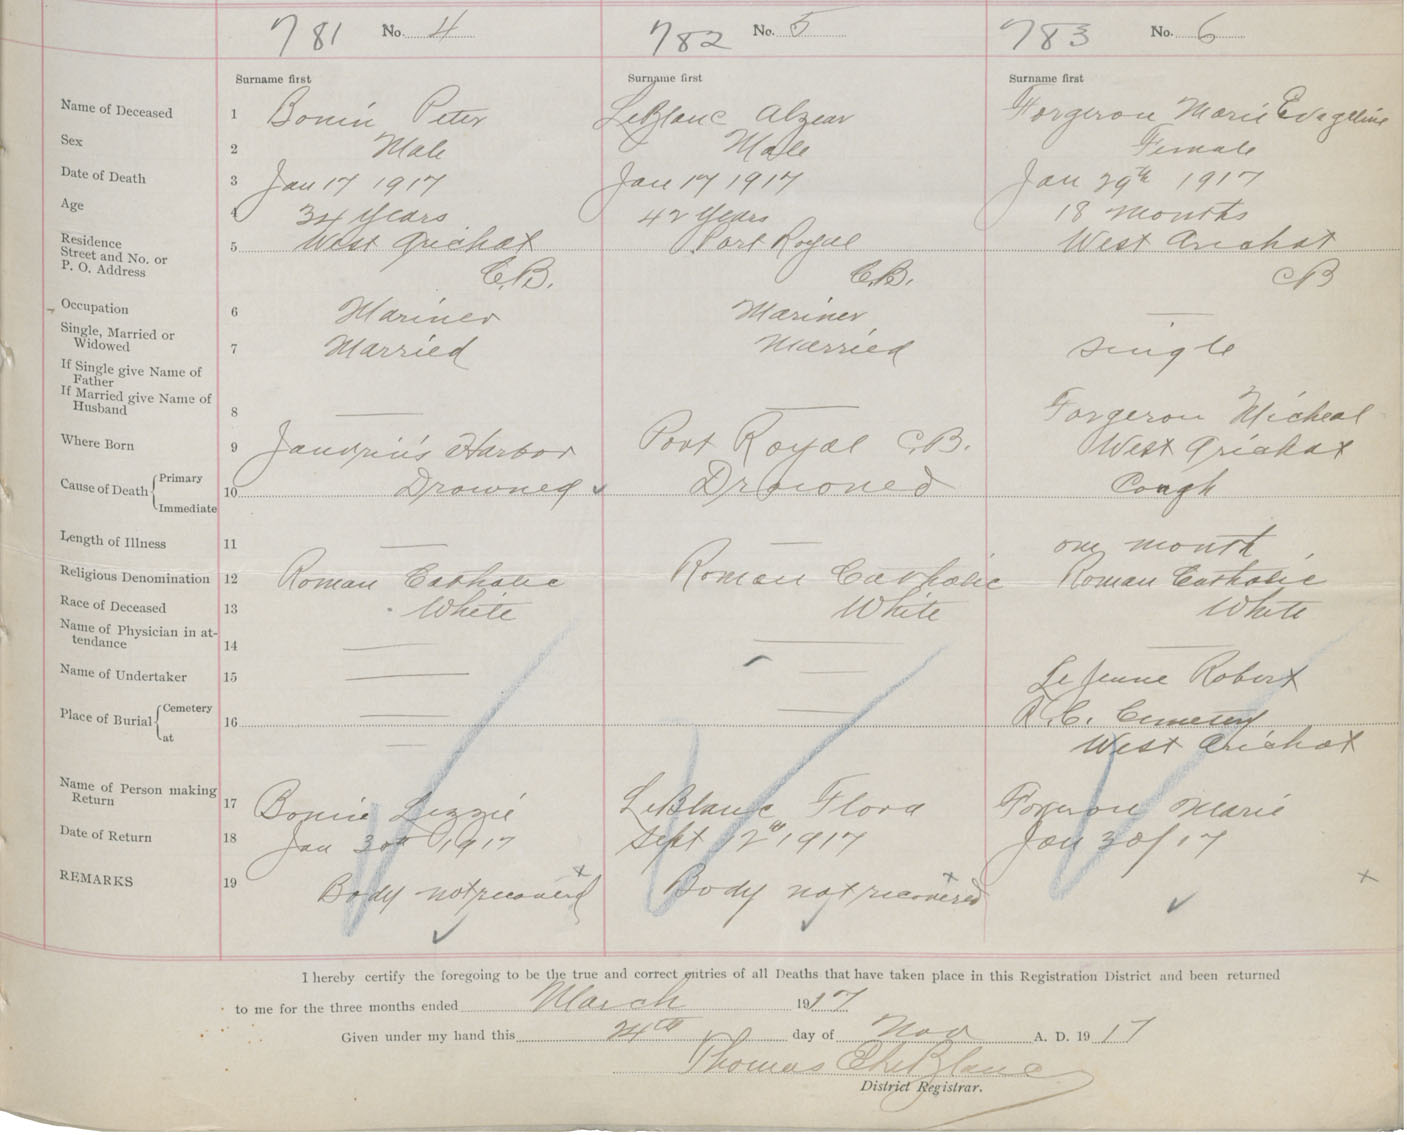 781 No. 4 782 No. 5 783 No. 6
Surname first Surname first Surname first
Name of Deceased 1 Bonin Peter LeBlanc Alzear Forgeron Marie Evageline
Sex 2 Male Male Female
Date of Death 3 Jan 17 1917 Jan 17 1917 Jan 29th 1917
Age 4 34 years 42 years 18 months
Residence
Street and No. or
P. O. Address
5 West Arichat Port Royal West Arichat
C.B. C.B. CB
Occupation 6 Mariner Mariner —
Single, Married or
Widowed
7 Married Married Single
If Single give Name of
Father
If Married give Name of
Husband
8 — — Forgeron Micheal
Where Born 9 Janvrin's Harbor Port Royal C.B. West Arichat
Cause of Death { Primary
Immediate
10 Drowned Drowned Cough
Length of Illness 11 — — one month
Religious Denomination 12 Roman Catholic Roman Catholic Roman Catholic
Race of Deceased 13 White White White
Name of Physician in at-
tendance
14 — — —
Name of Undertaker 15 — — LeJeune Robert
Place of Burial { Cemetery
at
16 — — R.C. Cemetery
— West Arichat
Name of Person making
Return
17 Bonin Lizzie LeBlanc Flora Forgeron Marie
Date of Return 18 Jan 30th 1917 Sept 12th 1917 Jan 30/17
REMARKS 19 Body not recovered Body not recovered
I hereby certify the foregoing to be the true and correct entries of all Deaths that have taken place in this Registration District and been returned
to me for the three months ended March 1917
Given under my hand this 24th day of Nov A. D. 1917
Thomas LeBlanc
District Registrar.